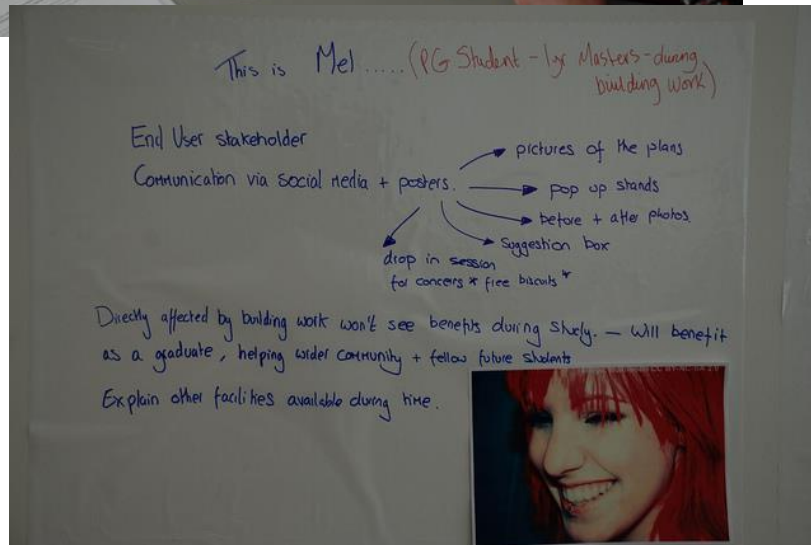 This is Mel ..... (PG Student - 1yr Masters - during
building work)
End User stakeholder
Communication via social media + posters.
pictures of the plans
pop up stands
before + after photos.
suggestion box
drop in session
for concers * free biscuits *
Directly affected by building work won't see benefits during study. — will benefit
as a graduate, helping wider community + fellow future students
Explain other facilities available during time.